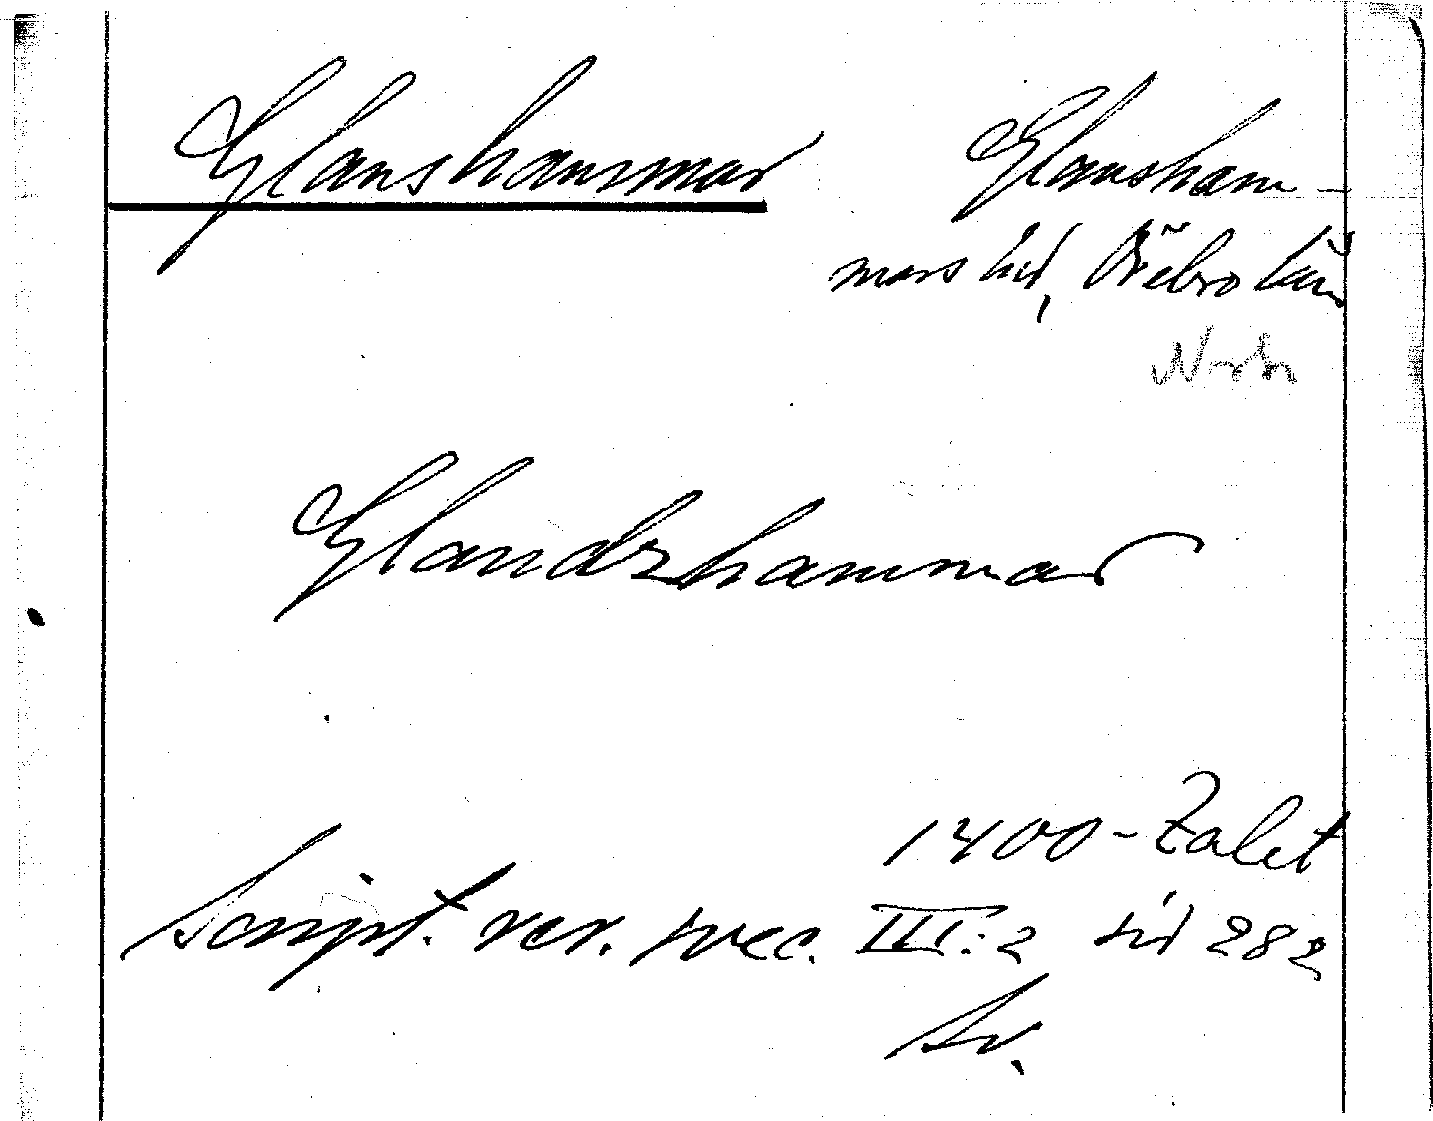 Glanshammar
Glansham-
mars hd, Örebro län
Glandzhammar
1400-talet
Script. rer. svec. III:2 sid 282
Sv.